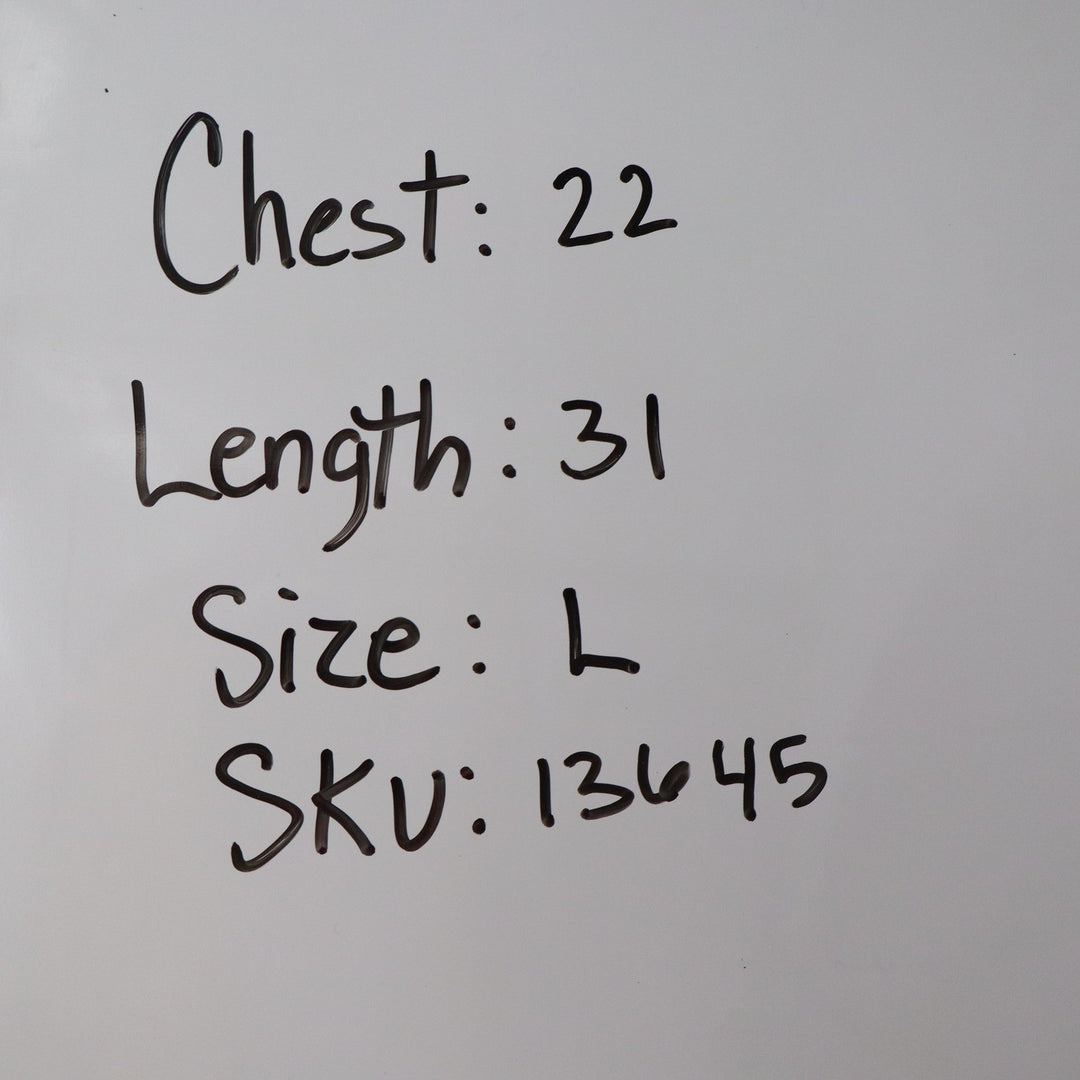 Chest: 22
Length: 31
Size: L
SKU: 13645